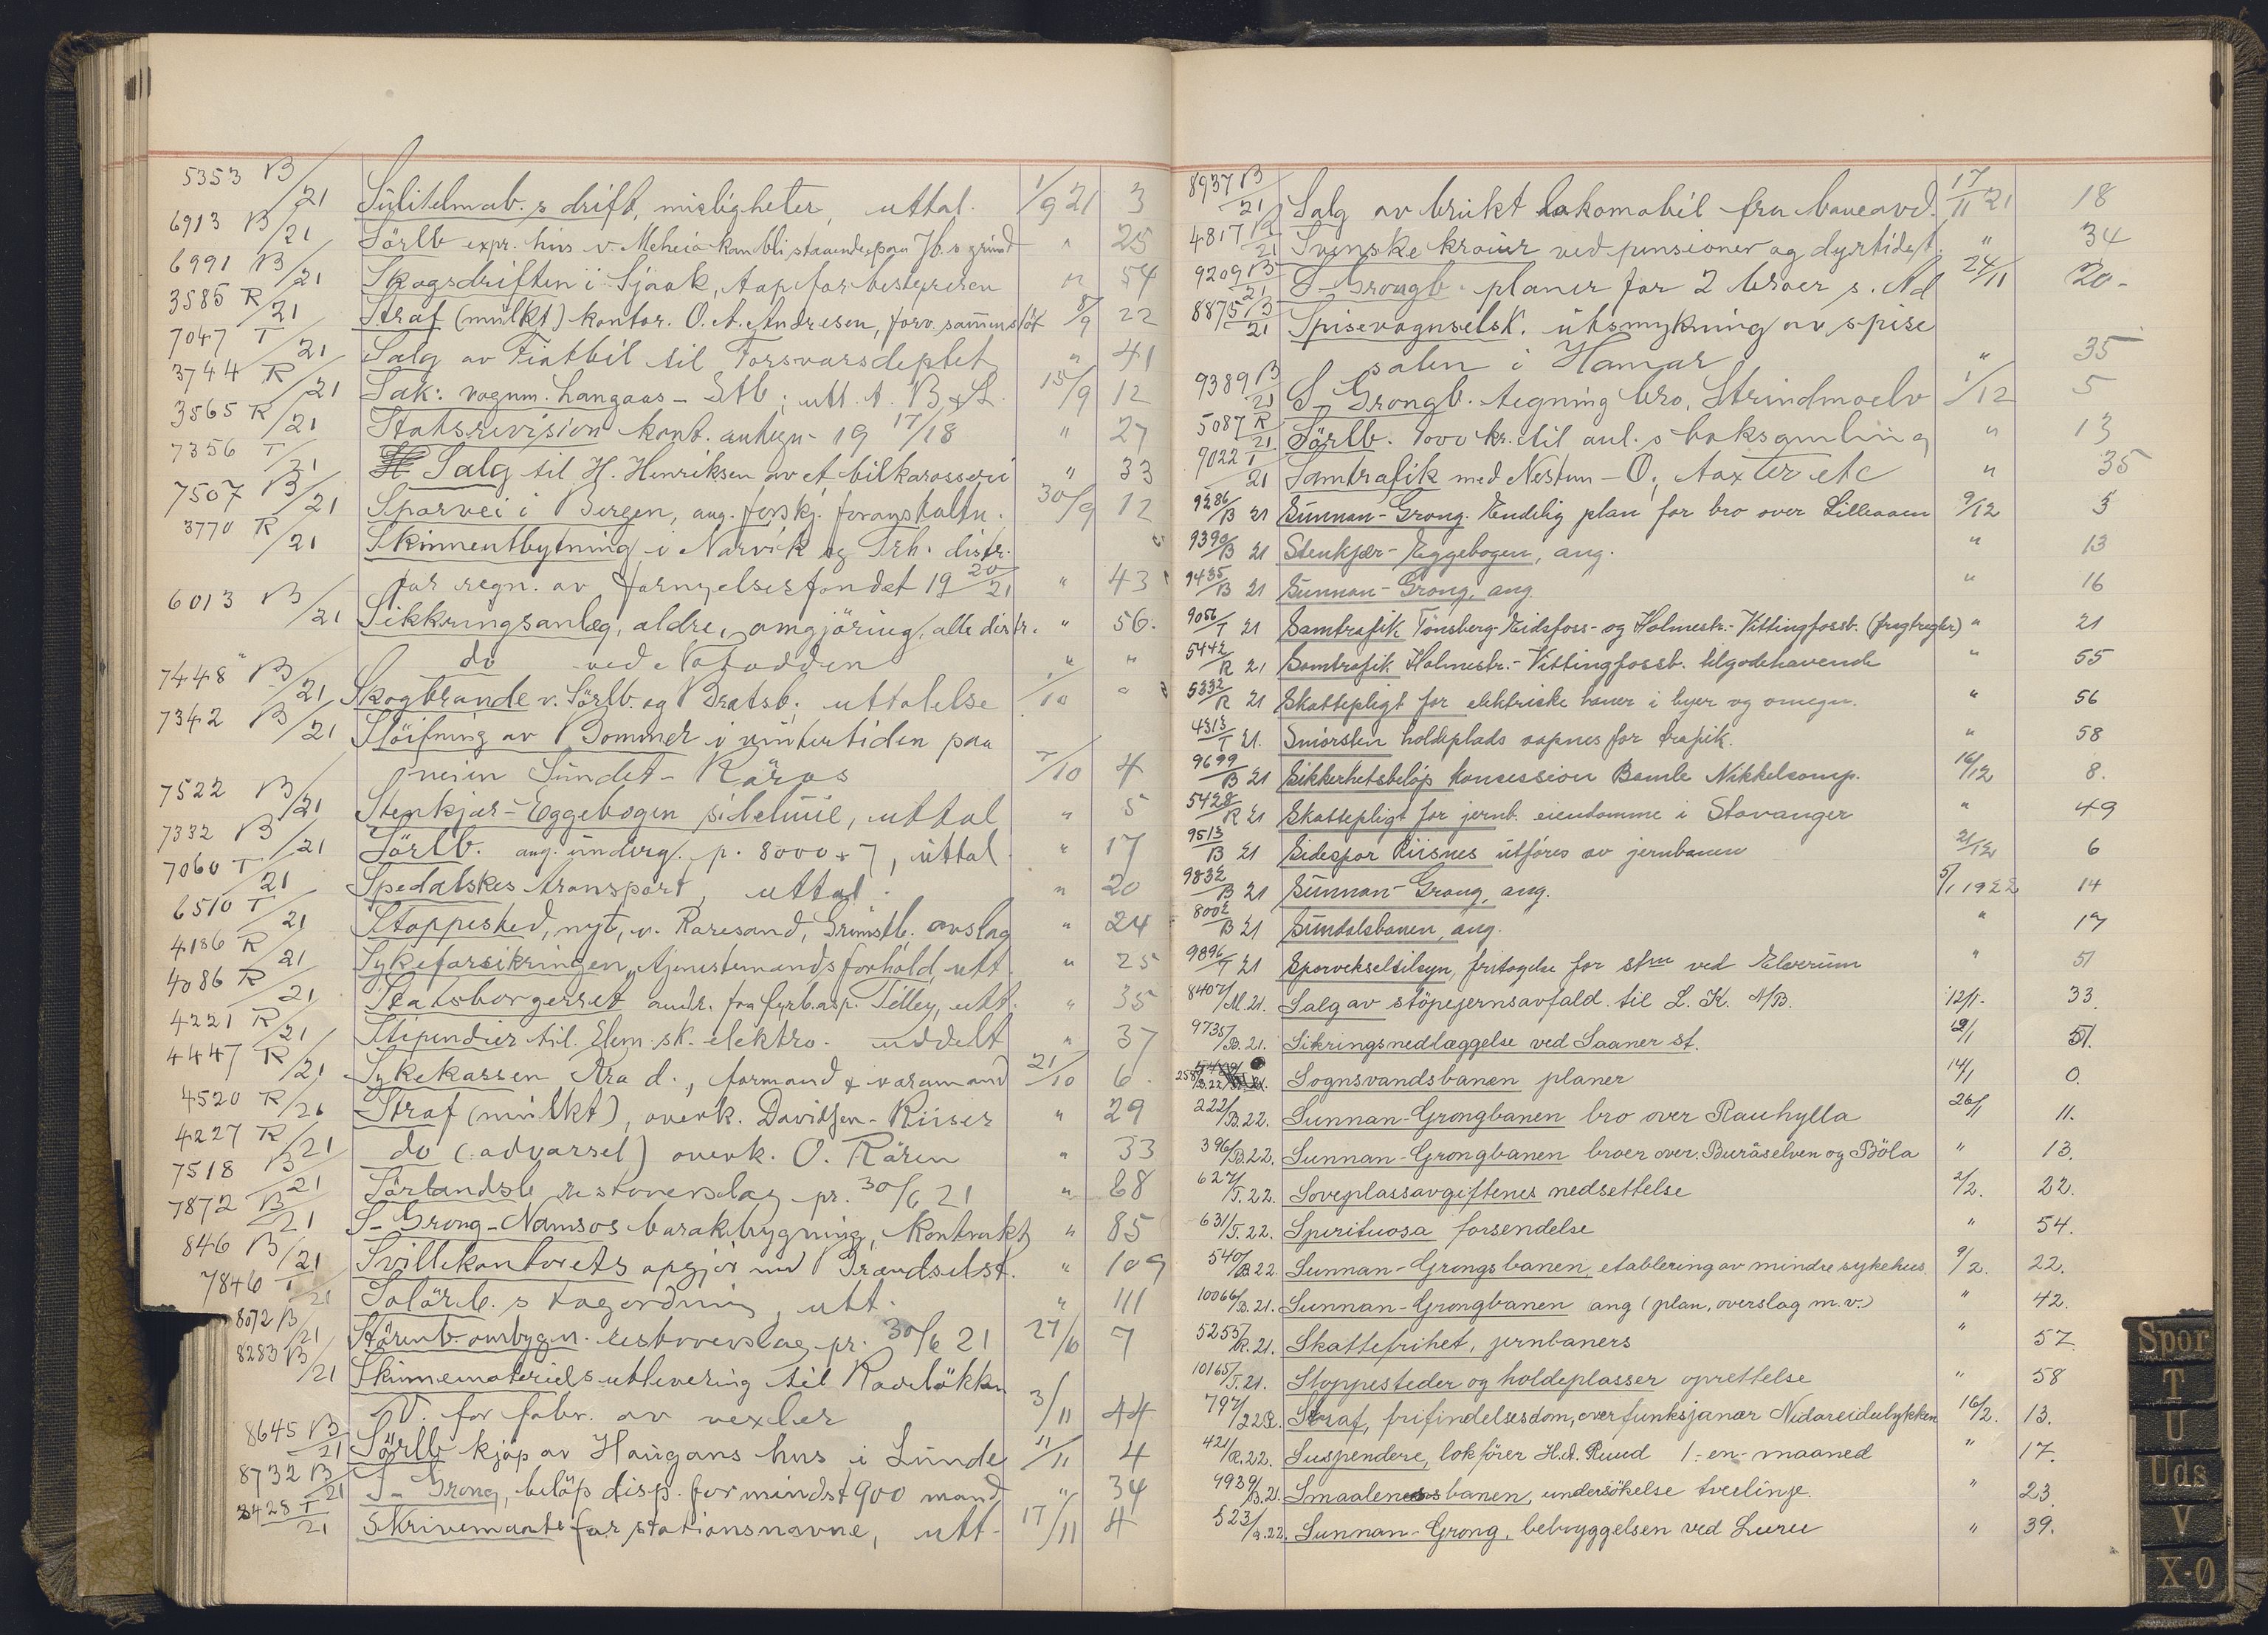 5353 B/21 Sulitelmab.s drift, misligheter, uttal. 1/9 21 3
6913 B/21 Sörlb expr. hus v. Meheia kan bli staaende paa Jb.s grund " 25
6991 B/21 Skogsdriften i Sjaak, tap for bestyreren " 54
3585 R/21 Straf (mulkt) kontor. O. A. Andresen, forv. sammenstöt 8/9 22
7047 T/21 Salg av Fiatbil til Forsvarsdeptet " 41
3744 R/21 Sak: vognm. Langaas - Stb; utt. t. B & L. 15/9 12
3565 R/21 Statsrevision kont. antegn. 19 17/18 " 27
7356 T/21 Salg til H. Henriksen av et bilkarosseri " 33
7507 B/21 Sporvei i Bergen, ang. forskj. foranstaltn. 30/9 12
3770 R/21 Skinneutbytning i Narvik og Trh. distr.
for regn. av fornyelsesfondet 19 20/21 " 43
6013 B/21 Sikkringsanlæg, ældre, omgjöring, alle distr. " 56.
" do ved Notodden " "
7448 B/21 Skogbrande v. Sörlb. og Bratsb. uttalelse 1/10 "
7342 B/21 Slöifning av Bommer i vintertiden paa
veien Sundet - Röros 7/10 4
7522 B/21 Stenkjær - Eggebogen sidelinie, uttal " 5
7332 B/21 Sörlb. ang. underg. p. 8000+7, uttal. " 17
7060 T/21 Spedalskes transport, uttal. " 20
6510 T/21 Stoppested, nyt, v. Roresand, Grimstb. avslag " 24
4186 R/21 Sykeforsikringen, tjenestemands forhold, utt. " 25
4086 R/21 Statsborgerret andr. fra fyrb.asp. Tilley, utt. " 35
4221 R/21 Stipendier til Elem. sk. elektro. uddelt " 37
4447 R/21 Sykekassen Ara d., formand & varamand 21/10 6.
4520 R/26 Straf (mulkt), overk. Davidsen - Riiser " 29
4227 R/21 do (advarsel) overk. O. Rören " 33
7518 B/21 Sörlandsb restoverslag pr. 30/6 21 " 68
7872 B/21 S- Grong - Namsos barakbygning, kontrakt " 85
846 B/21 Svillekontorets opgjör med Brændselst. " 109
7846 T/21 Solörb.s togordning, utt. " 111
8072 B/21 Störenb-ombygn. restoverslag pr. 30/6 21 27/10 7
8283 B/21 Skinnemateriels utlevering til Rodelökken
V. for fabr. av vexler 3/11 44
8645 B/21 Sörlb kjöp av Haugans hus i Lunde 11/11 4
8732 B/21 S- Grong, belöp disp. for mindst 900 mand " 34
3428 T/21 Skrivemaate for stationsnavne, utt- 17/11 4
8937 B/21 Salg av brukt lokomobil fra baneavd. 17/11 21 18
4817 R/21 Svenske kroner ved pensioner og dyrtidst. " 34
9209 B/21 S- Grongb. planer for 2 broer s. Nd 24/11 20-
8875 B/21 Spisevognselsk. utsmykning av spise
salen i Hamar " 35
9389 B/21 S- Grongb. tegning bro, Strindmoelv 1/12 5
5087 R/21 Sörlb. 1000 kr. til anl.s boksamling " 13
9022 T/21 Samtrafik med Nestun - O; taxter etc " 35
9286/B 21 Sunnan - Grong. Endelig plan for bro over Lilleaaen 9/12 5
9390/B 21 Stenkjær - Eggebogen, ang. " 13
9435/B 21 Sunnan - Grong, ang. " 16
9056/T 21 Samtrafik Tönsberg-Eidsfoss- og Holmestr.-Vittingfossb. (fragtregler) " 21
5442/R 21 Samtrafik Holmestr.- Vittingfossb. tilgodehavende " 55
5332/R 21 Skattepligt for elektriske baner i byer og omegn. " 56
4313/T 21. Sniorsten holdeplads aapnes for trafik. " 58
9699/B 21 Sikkerhetsbelöp konsession Bamle Nikkelcomp. 16/12 8.
5428/R 21 Skattepligt for jernb. eiendomme i Stavanger " 49
9513/B 21 Sidespor Riisnes utföres av jernbanen 21/12 6
9832/B 21 Sunnan - Grong, ang. 5/1 1922 14
8002/B 21 Sundalsbanen, ang. " 17
9896/T 21 Sporvekseltilsyn, fritagelse for stm ved Elverum " 51
8407/M. 21. Salg av stöpejernsavfald til L. K. A/B. 12/1. 33.
9735/B. 21. Sikringsnedlæggelse ved Saaner st. 12/1 51.
258/B.22 Sognsvandsbanen planer 14/1 0.
222/B.22. Sunnan-Grongbanen bro over Rauhylla 26/1 11.
396/B.22. Sunnan-Grongbanen broer over. Buråselven og Böla " 13.
627/T. 22. Soveplassavgiftenes nedsettelse 2/2. 22.
631/T. 22. Spirituosa forsendelse " 54.
540/B 22. Sunnan-Grongs banen, etablering av mindre sykehus. 9/2. 22.
10066/B. 21. Sunnan-Grongbanen ang (plan, overslag m.v.) " 42.
5255/R. 21. Skattefrihet, jernbaners " 57.
10165/T. 21. Stoppesteder og holdeplasser oprettelse " 58
797/22 R. Straf, frifindelsesdom, over funksjonær Nidareidulykken 16/2. 13.
421/R. 22. Suspendere, lokförer H. A. Ruud 1-en-maaned " 17.
9939/B. 21. Smaalenenes banen, undersökelse tverlinje. " 23.
523/B. 22. Sunnan-Grong, bebyggelsen ved Luru " 39.
Spor
T
U
Uds
V
X-Ø